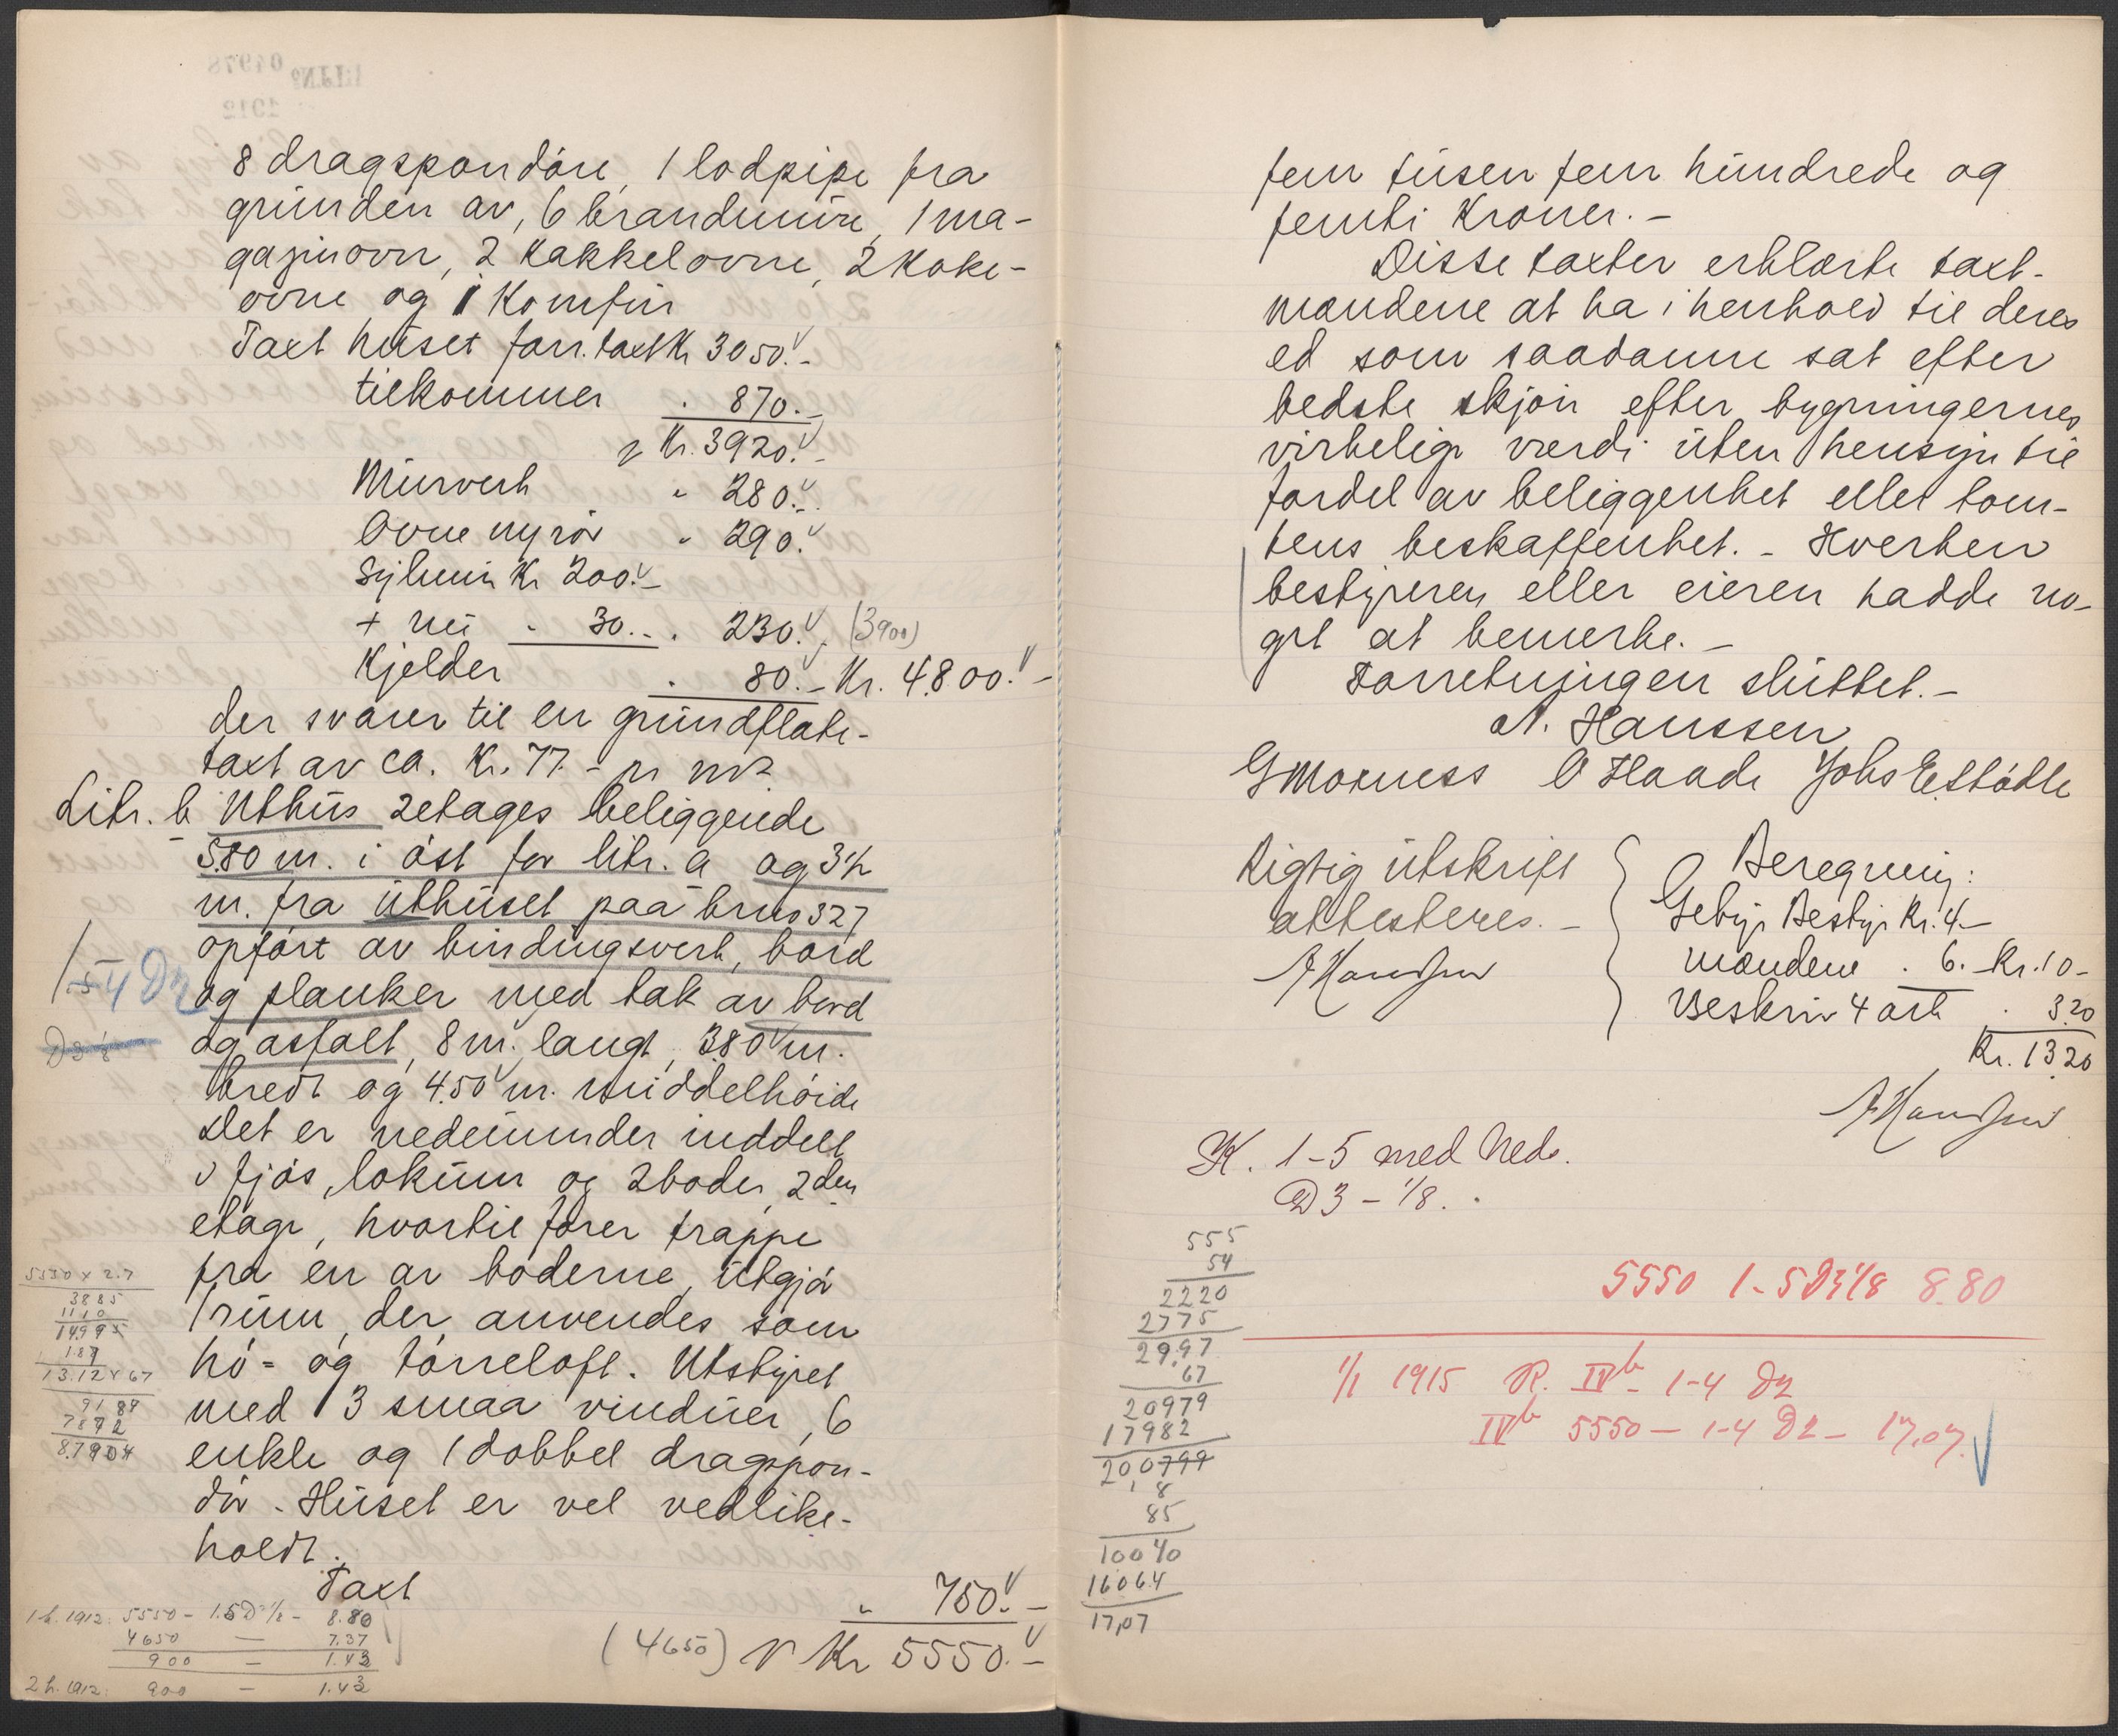 8 dragspondøre, 1 lodpipe fra
grunden av, 6 brandmure, 1 ma-
gazinovn, 2 kakkelovne, 2 koke-
ovne og 1 Komfur
Taxt huset forr. taxt Kr 3050.-
tilkommer " 870.-
Kr. 3920.-
Murverk " 280.-
Ovne og rør " 290.
Kr 200.-
+ nu " 30.- " 230. (3900)
Kjelder " 80.- Kr. 4800.-
der svarer til en grundflate-
taxt av ca. Kr. 77.- pr m2
Litr. b Uthus 2 etages beliggende
5.80 m. i øst for litr. a og 3½
m. fra uthuset paa brno 327
opført av bindingsverk, bord
1.5 4 D2 og planker med tak av bord
D3 ⅛ og asfalt, 8 m. langt, 3.80 m.
bredt og 4.50 m. middelhøide
Det er nedenunder inddelt
i fjøs, lokum og 2 boder, 2den
etage, hvortil fører trappe
fra en av boderne, utgjør
1 rum, der anvendes som
hø- og tørreloft. Utstyret
med 3 smaa vinduer, 6
enkle og 1 dobbel dragspon-
dør. Huset er vel vedlike-
holdt.
Taxt
" 750.-
(4650) Kr 5550.-
5550 x 2.7
3885
1110
14995
1.87
13.12 x 67
9184
7872
8.7904
1 h. 1912: 5550 - 1.5 D3 ⅛ - 8.80
4650 — 7.37
900 — 1.43
2 h. 1912: 900 — 1.43
fem tusen fem hundrede og
femti Kroner.-
Disse taxter erklærte taxt-
mændene at ha i henhold til deres
ed som saadanne sat efter
bedste skjøn efter bygningernes
virkelige værdi uten hensyn til
fordel av beliggenhet eller tom-
tens beskaffenhet. - Hverken
bestyreren eller eieren hadde no-
get at bemerke. -
Forretningen sluttet. -
A. Hanssen
G Moxness O Haade Johs E. Stødle
Rigtig utskrift
attesteres. -
A Hanssen
Beregning:
Gebyr Bestyr Kr. 4 -
mændene . 6. - Kr. 10 -
Beskriv 4 ark . 3.20
Kr. 13.20
A Hanssen
K. 1-5 med Neds.
D3 - ⅛.
555
54
2220
2775
29.97
67
20979
17982
200799
18
85
10040
16064
17,07
5550 1-5 D3 ⅛ 8.80
1/1 1915 R. IVb - 1-4 D2
IVb 5550 - 1-4 D2 - 17,07.